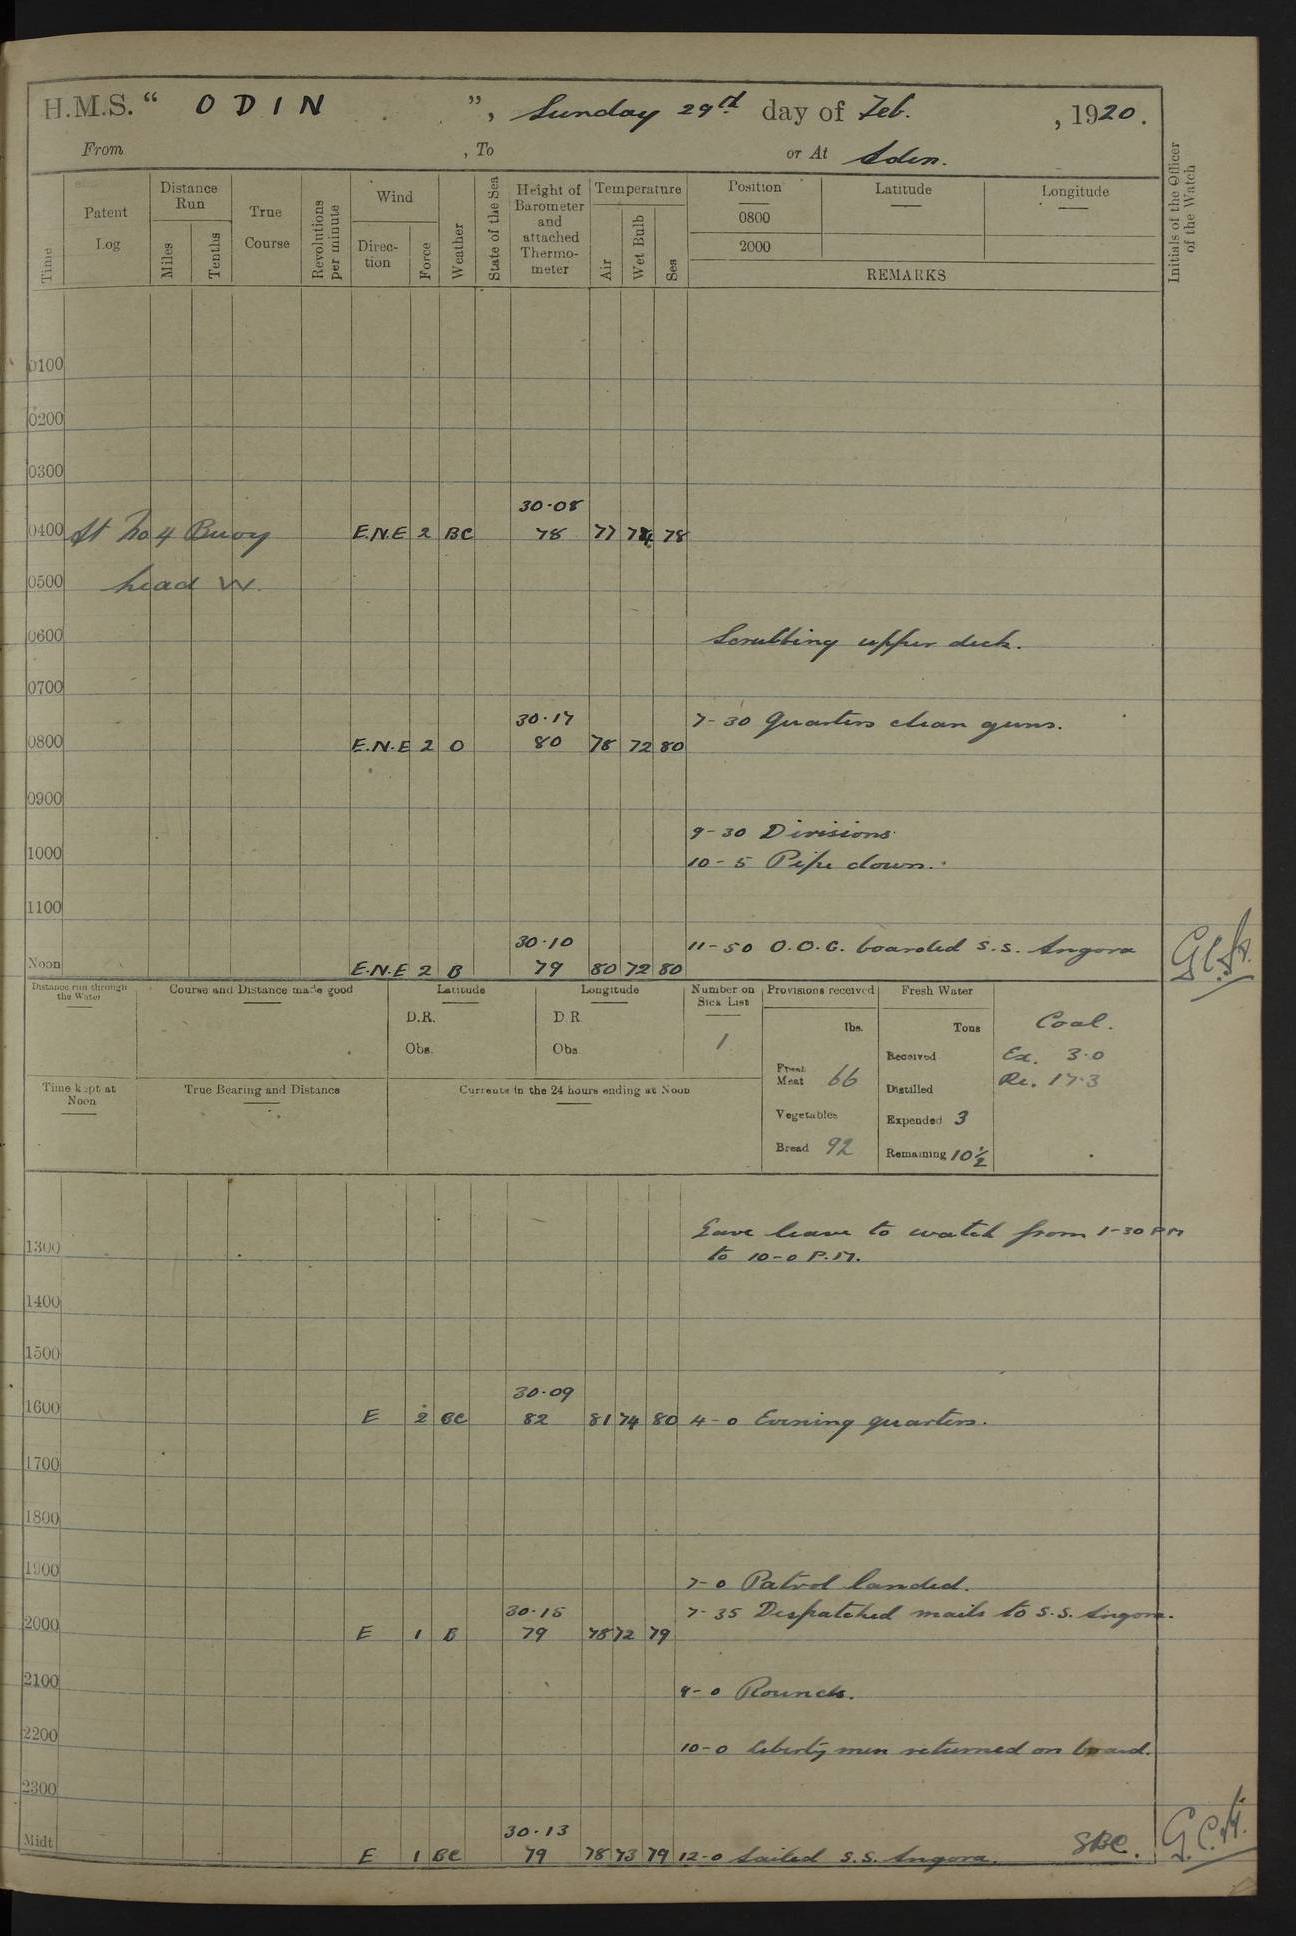 H.M.S. “ ODIN ”, Sunday 29th day of Feb. , 1920.
From , To or At Aden.
Time Patent Log Distance Run Miles Tenths True Course Revolutions per minute Wind Direc-tion Force Weather State of the Sea Height of Barometer and attached Thermo-meter Temperature Air Wet Bulb Sea Position 0800 2000 Latitude Longitude
REMARKS
Initials of the Officer of the Watch
0100
0200
0300
30·08
0400 At No 4 Buoy E.N.E 2 BC 78 77 74 78
0500 head W.
0600 Scrubbing upper deck.
0700
30·17 7-30 Quarters clean guns.
0800 E.N.E 2 O 80 78 72 80
0900
9-30 Divisions
1000 10-5 Pipe down.
1100
30·10 11-50 O.O.G. boarded S.S. Angora
Noon E.N.E 2 B 79 80 72 80
Distance run through the Water Course and Distance made good Latitude Longitude Number on Sick List Provisions received Fresh Water
D.R. D.R. lbs. Tons Coal.
Obs. Obs. 1 Received Ex. 3·0
Fresh Meat 66 Distilled Re. 173
Time kept at Noon True Bearing and Distance Currents in the 24 hours ending at Noon
Vegetables Expended 3
Bread 92 Remaining 10½
Gave leave to watch from 1-30 PM
1300 to 10-0 P.M.
1400
1500
30·09
1600 E 2 BC 82 81 74 80 4-0 Evening quarters.
1700
1800
1900 7-0 Patrol landed.
30·15 7-35 Despatched mails to S.S. Angora.
2000 E 1 B 79 78 72 79
2100 9-0 Rounds.
2200 10-0 Liberty men returned on board.
2300
30·13
Midt E 1 BC 79 78 73 79 12-0 Sailed S.S. Angora. G.C.H.